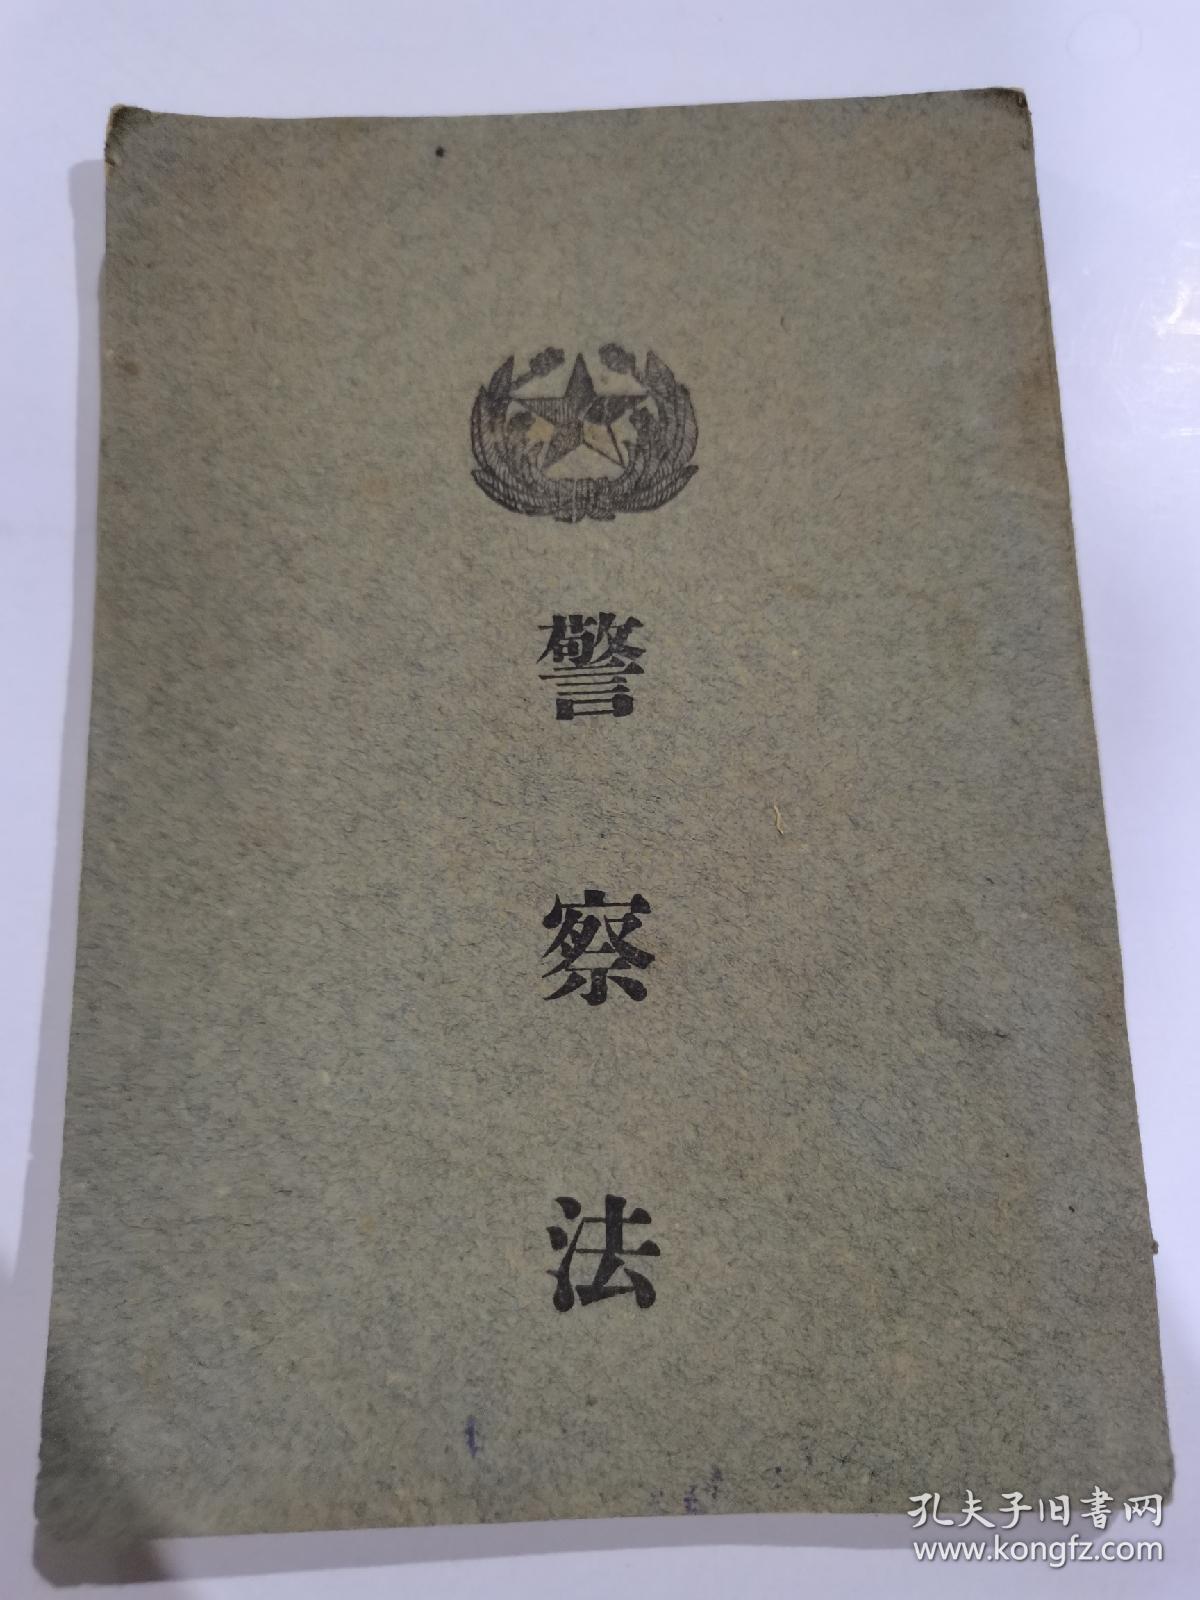 警察法
孔夫子旧書网
www.kongfz.com